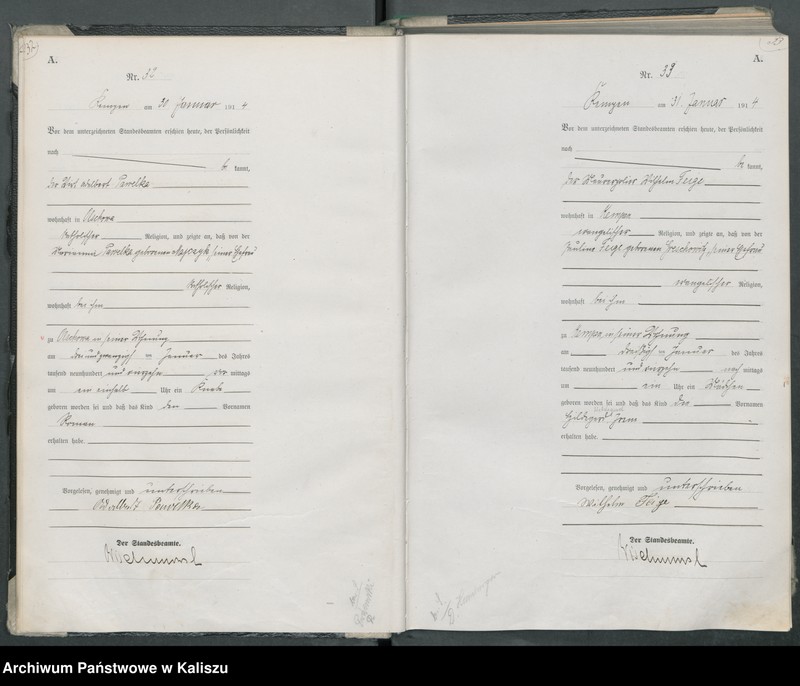 A.
Nr. 32
Kempen am 30 Januar 1914
Vor dem unterzeichneten Standesbeamten erschien heute, der Persönlichkeit
nach
be kannt,
der Wirt Adelbert Pawelka
wohnhaft in
katholischer Religion, und zeigte an, daß von der
Pawelka geborenen seiner Ehefrau
katholischer Religion,
wohnhaft bei ihm
zu in seiner Wohnung
am Januar des Jahres
tausend neunhundert und vierzehn vor mittags
um ein einhalb Uhr ein Knabe
geboren worden sei und daß das Kind den Vornamen
Roman
erhalten habe.
Vorgelesen, genehmigt und unterschrieben
Pawelka
Der Standesbeamte.
A.
Nr. 33
Kempen am 31. Januar 1914
Vor dem unterzeichneten Standesbeamten erschien heute, der Persönlichkeit
nach
be kannt,
der Maurerpolier Wilhelm Feige
wohnhaft in Kempen
evangelischer Religion, und zeigte an, daß von der
Pauline Feige geborenen seiner Ehefrau
evangelischer Religion,
wohnhaft bei ihm
zu Kempen in seiner Wohnung
am dreißigsten Januar des Jahres
tausend neunhundert und vierzehn nach mittags
um ein Uhr ein Mädchen
geboren worden sei und daß das Kind die Vornamen
Hildegard Irma
erhalten habe.
Vorgelesen, genehmigt und unterschrieben
Wilhelm Feige
Der Standesbeamte.
Archiwum Państwowe w Kaliszu